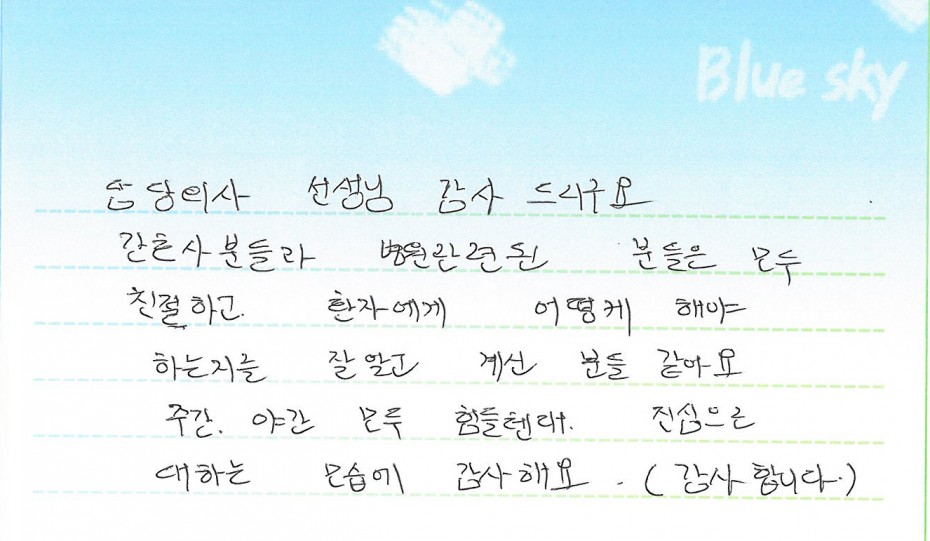 Blue sky
담당의사 선생님 감사 드리구요
간호사분들과 병원관련된 분들은 모두
친절하고. 환자에게 어떻게 해야
하는지를 잘 알고 계신 분들 같아요
주간. 야간 모두 힘들텐데. 진심으로
대하는 모습에 감사해요. (감사합니다.)